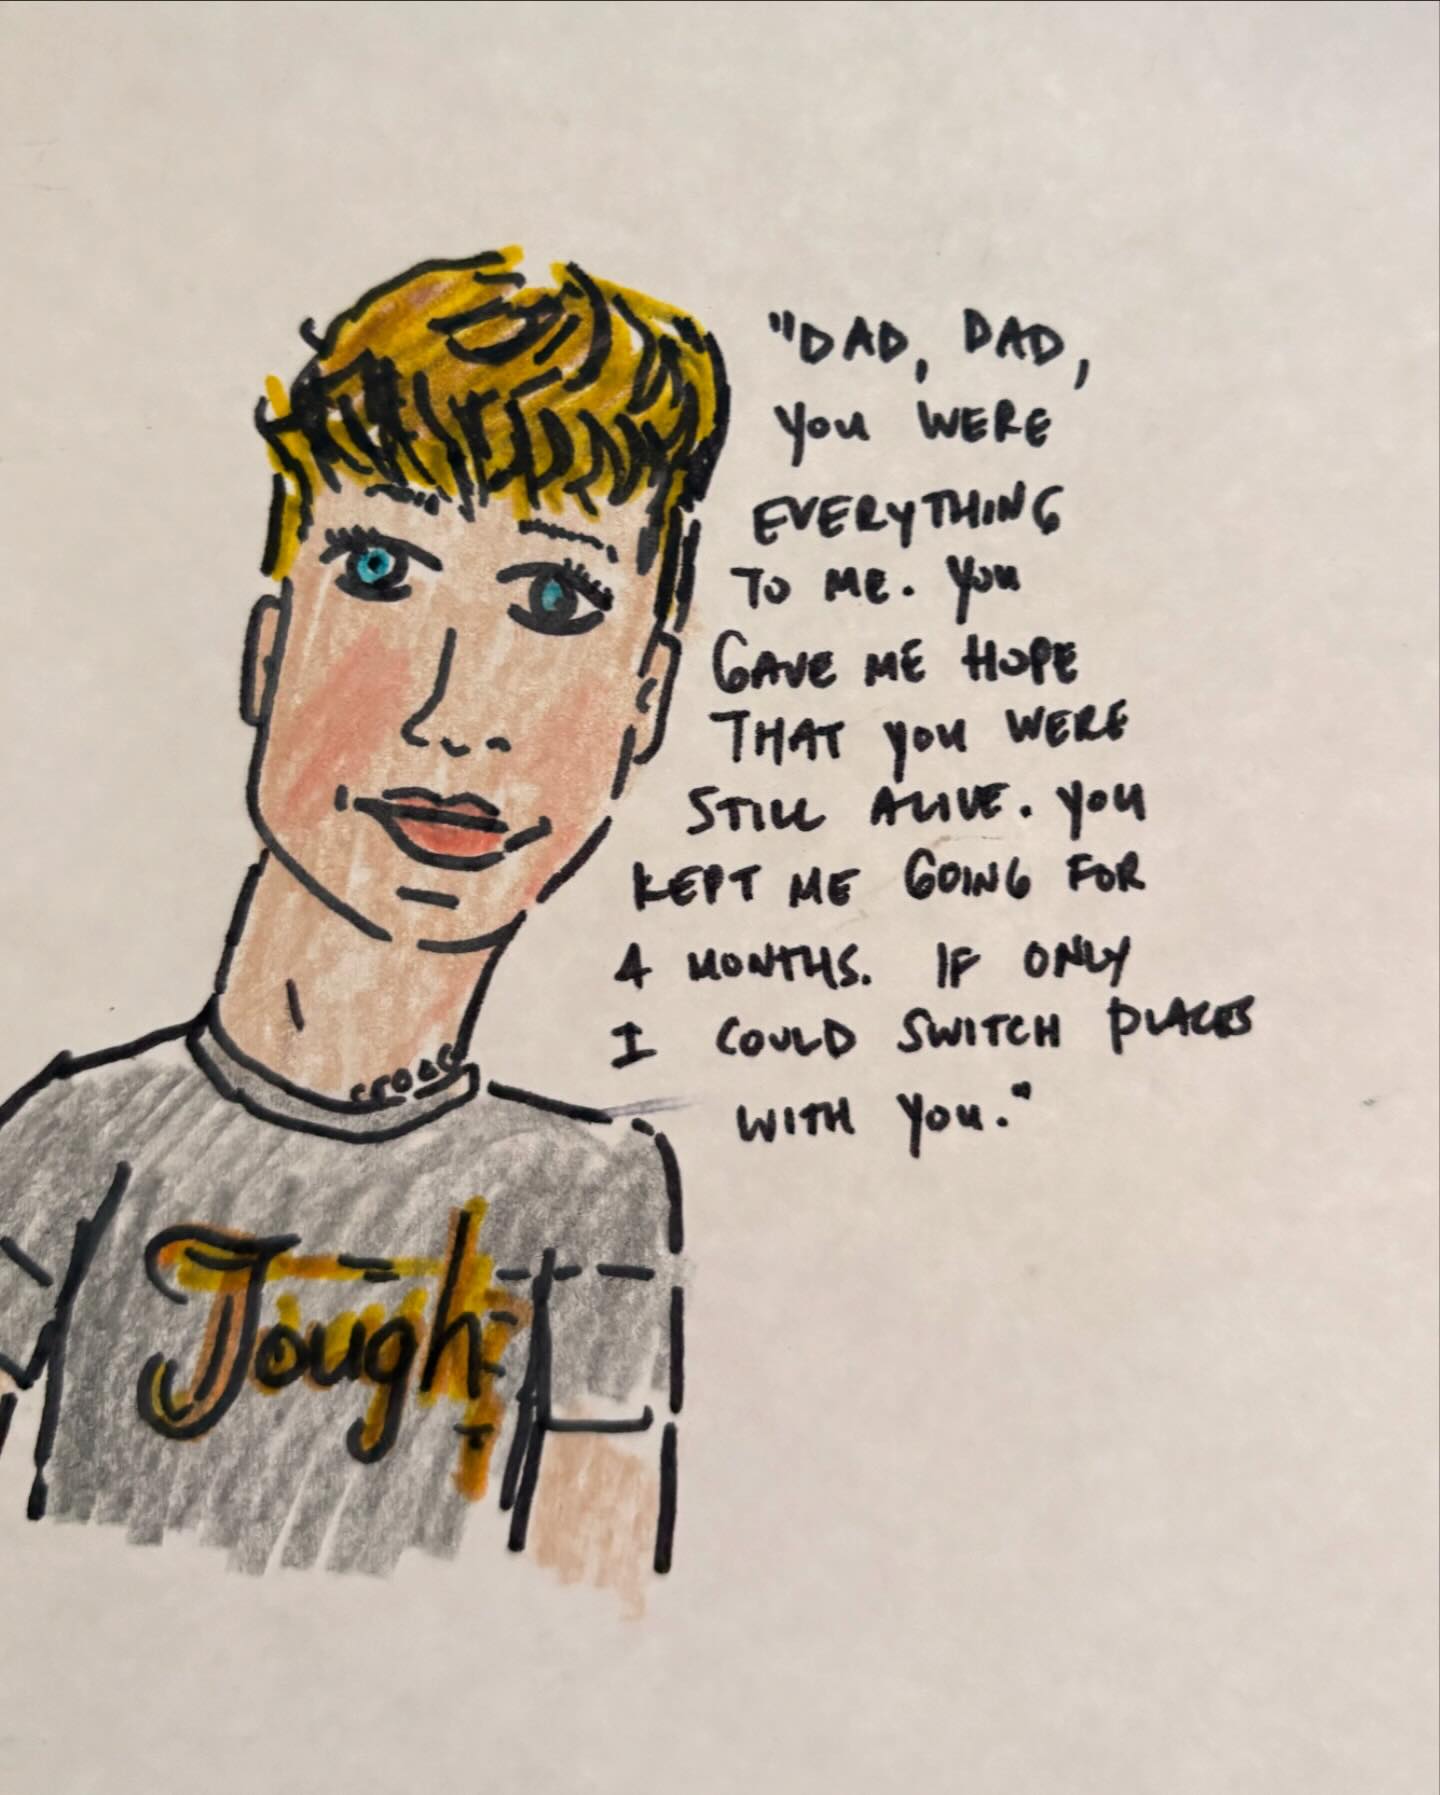 "DAD, DAD,
YOU WERE
EVERYTHING
TO ME. YOU
GAVE ME HOPE
THAT YOU WERE
STILL ALIVE. YOU
KEPT ME GOING FOR
4 MONTHS. IF ONLY
I COULD SWITCH PLACES
WITH YOU."
Tough